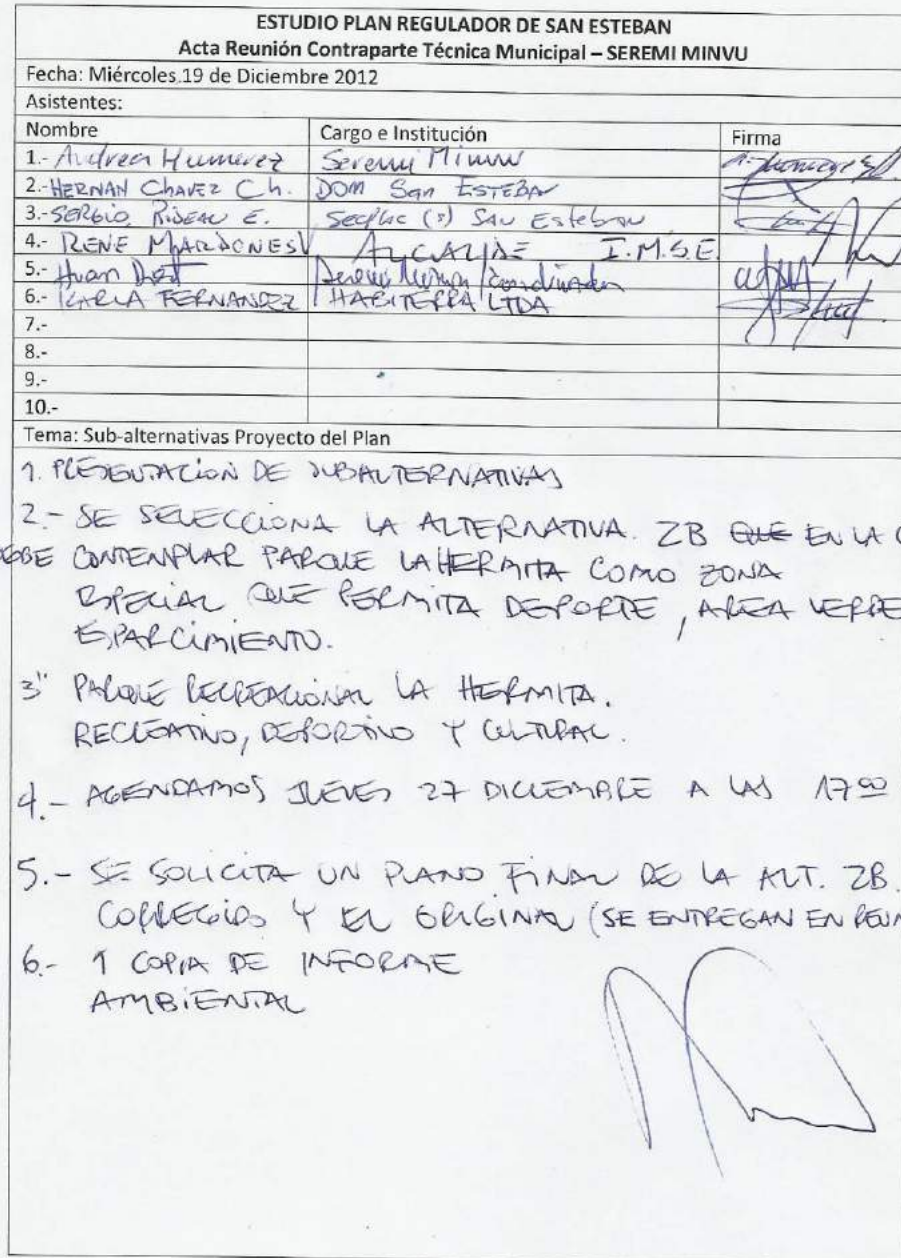 ESTUDIO PLAN REGULADOR DE SAN ESTEBAN
Acta Reunión Contraparte Técnica Municipal – SEREMI MINVU
Fecha: Miércoles 19 de Diciembre 2012
Asistentes:
Nombre Cargo e Institución Firma
1.- Andrea Humerez Seremi Minvu
2.- HERNAN CHAVEZ Ch. DOM San ESTEBAN
3.- SERGIO RIDEAU E. Secplac (s) San Esteban
4.- RENE MARDONES V ALCALDE I.M.S.E.
5.- Seremi Minvu / Coordinador
6.- KARLA FERNANDEZ HABITERRA LTDA
7.-
8.-
9.-
10.-
Tema: Sub-alternativas Proyecto del Plan
1. PRESENTACION DE SUBALTERNATIVAS
2.- SE SELECCIONA LA ALTERNATIVA. 2B QUE EN LA
DEBE CONTEMPLAR PARQUE LA HERMITA COMO ZONA
ESPECIAL QUE PERMITA DEPORTE, AREA VERDE
ESPARCIMIENTO.
3" PARQUE RECREACIONAL LA HERMITA.
RECREATIVO, DEPORTIVO Y CULTURAL.
4.- AGENDAMOS JUEVES 27 DICIEMBRE A LAS 17 00
5.- SE SOLICITA UN PLANO FINAL DE LA ALT. 2B.
CORREGIDO Y EL ORIGINAL (SE ENTREGAN EN REUN
6.- 1 COPIA DE INFORME
AMBIENTAL